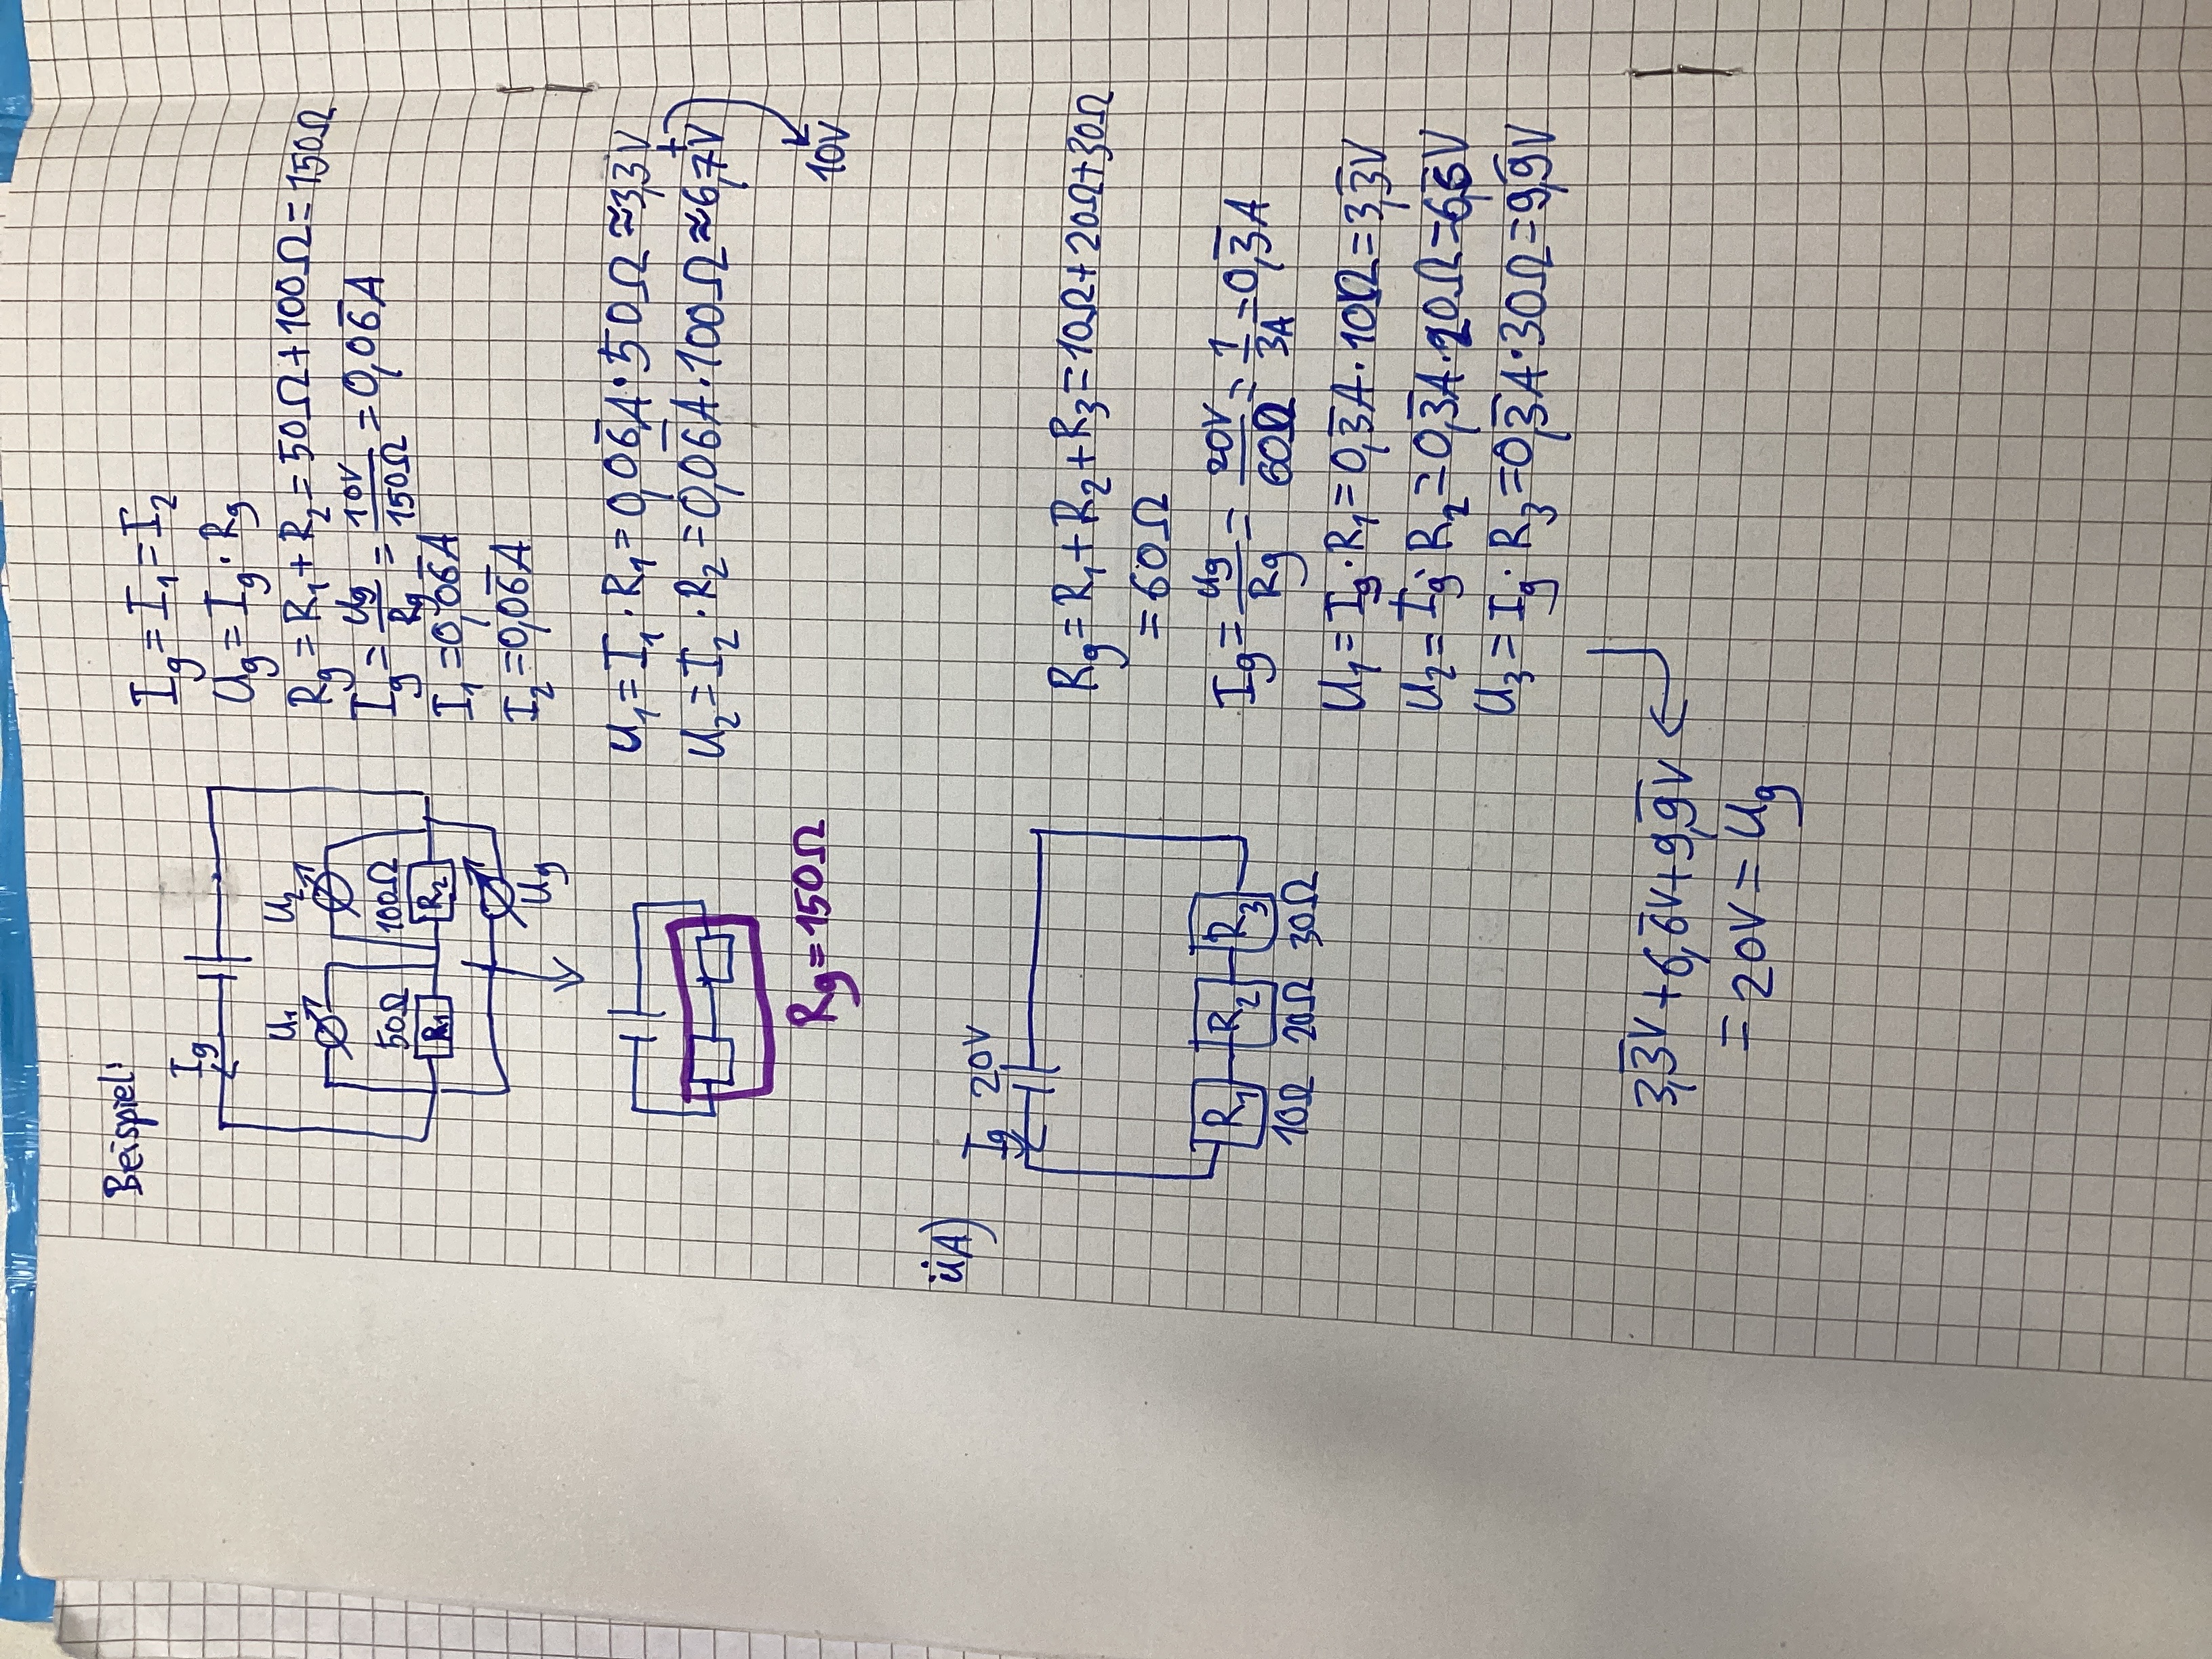 Beispiel:
Ig
U1 U2
50Ω 100Ω
R1 R2
Ug
Ig = I1 = I2
Ug = Ig · Rg
Rg = R1 + R2 = 50Ω + 100Ω = 150Ω
Ig = Ug/Rg = 10V/150Ω = 0,06̅A
I1 = 0,06̅A
I2 = 0,06̅A
U1 = I1 · R1 = 0,06̅A · 50Ω ≈ 3,3̅V
+
U2 = I2 · R2 = 0,06̅A · 100Ω ≈ 6,7V
10V
Rg = 150Ω
ü A)
Ig 20V
R1 R2 R3
10Ω 20Ω 30Ω
Rg = R1 + R2 + R3 = 10Ω + 20Ω + 30Ω
= 60Ω
Ig = Ug/Rg = 20V/60Ω = 1/3A = 0,3̅A
U1 = Ig · R1 = 0,3̅A · 10Ω = 3,3̅V
U2 = Ig · R2 = 0,3̅A · 20Ω = 6,6̅V
U3 = Ig · R3 = 0,3̅A · 30Ω = 9,9̅V
3,3̅V + 6,6̅V + 9,9̅V
= 20V = Ug